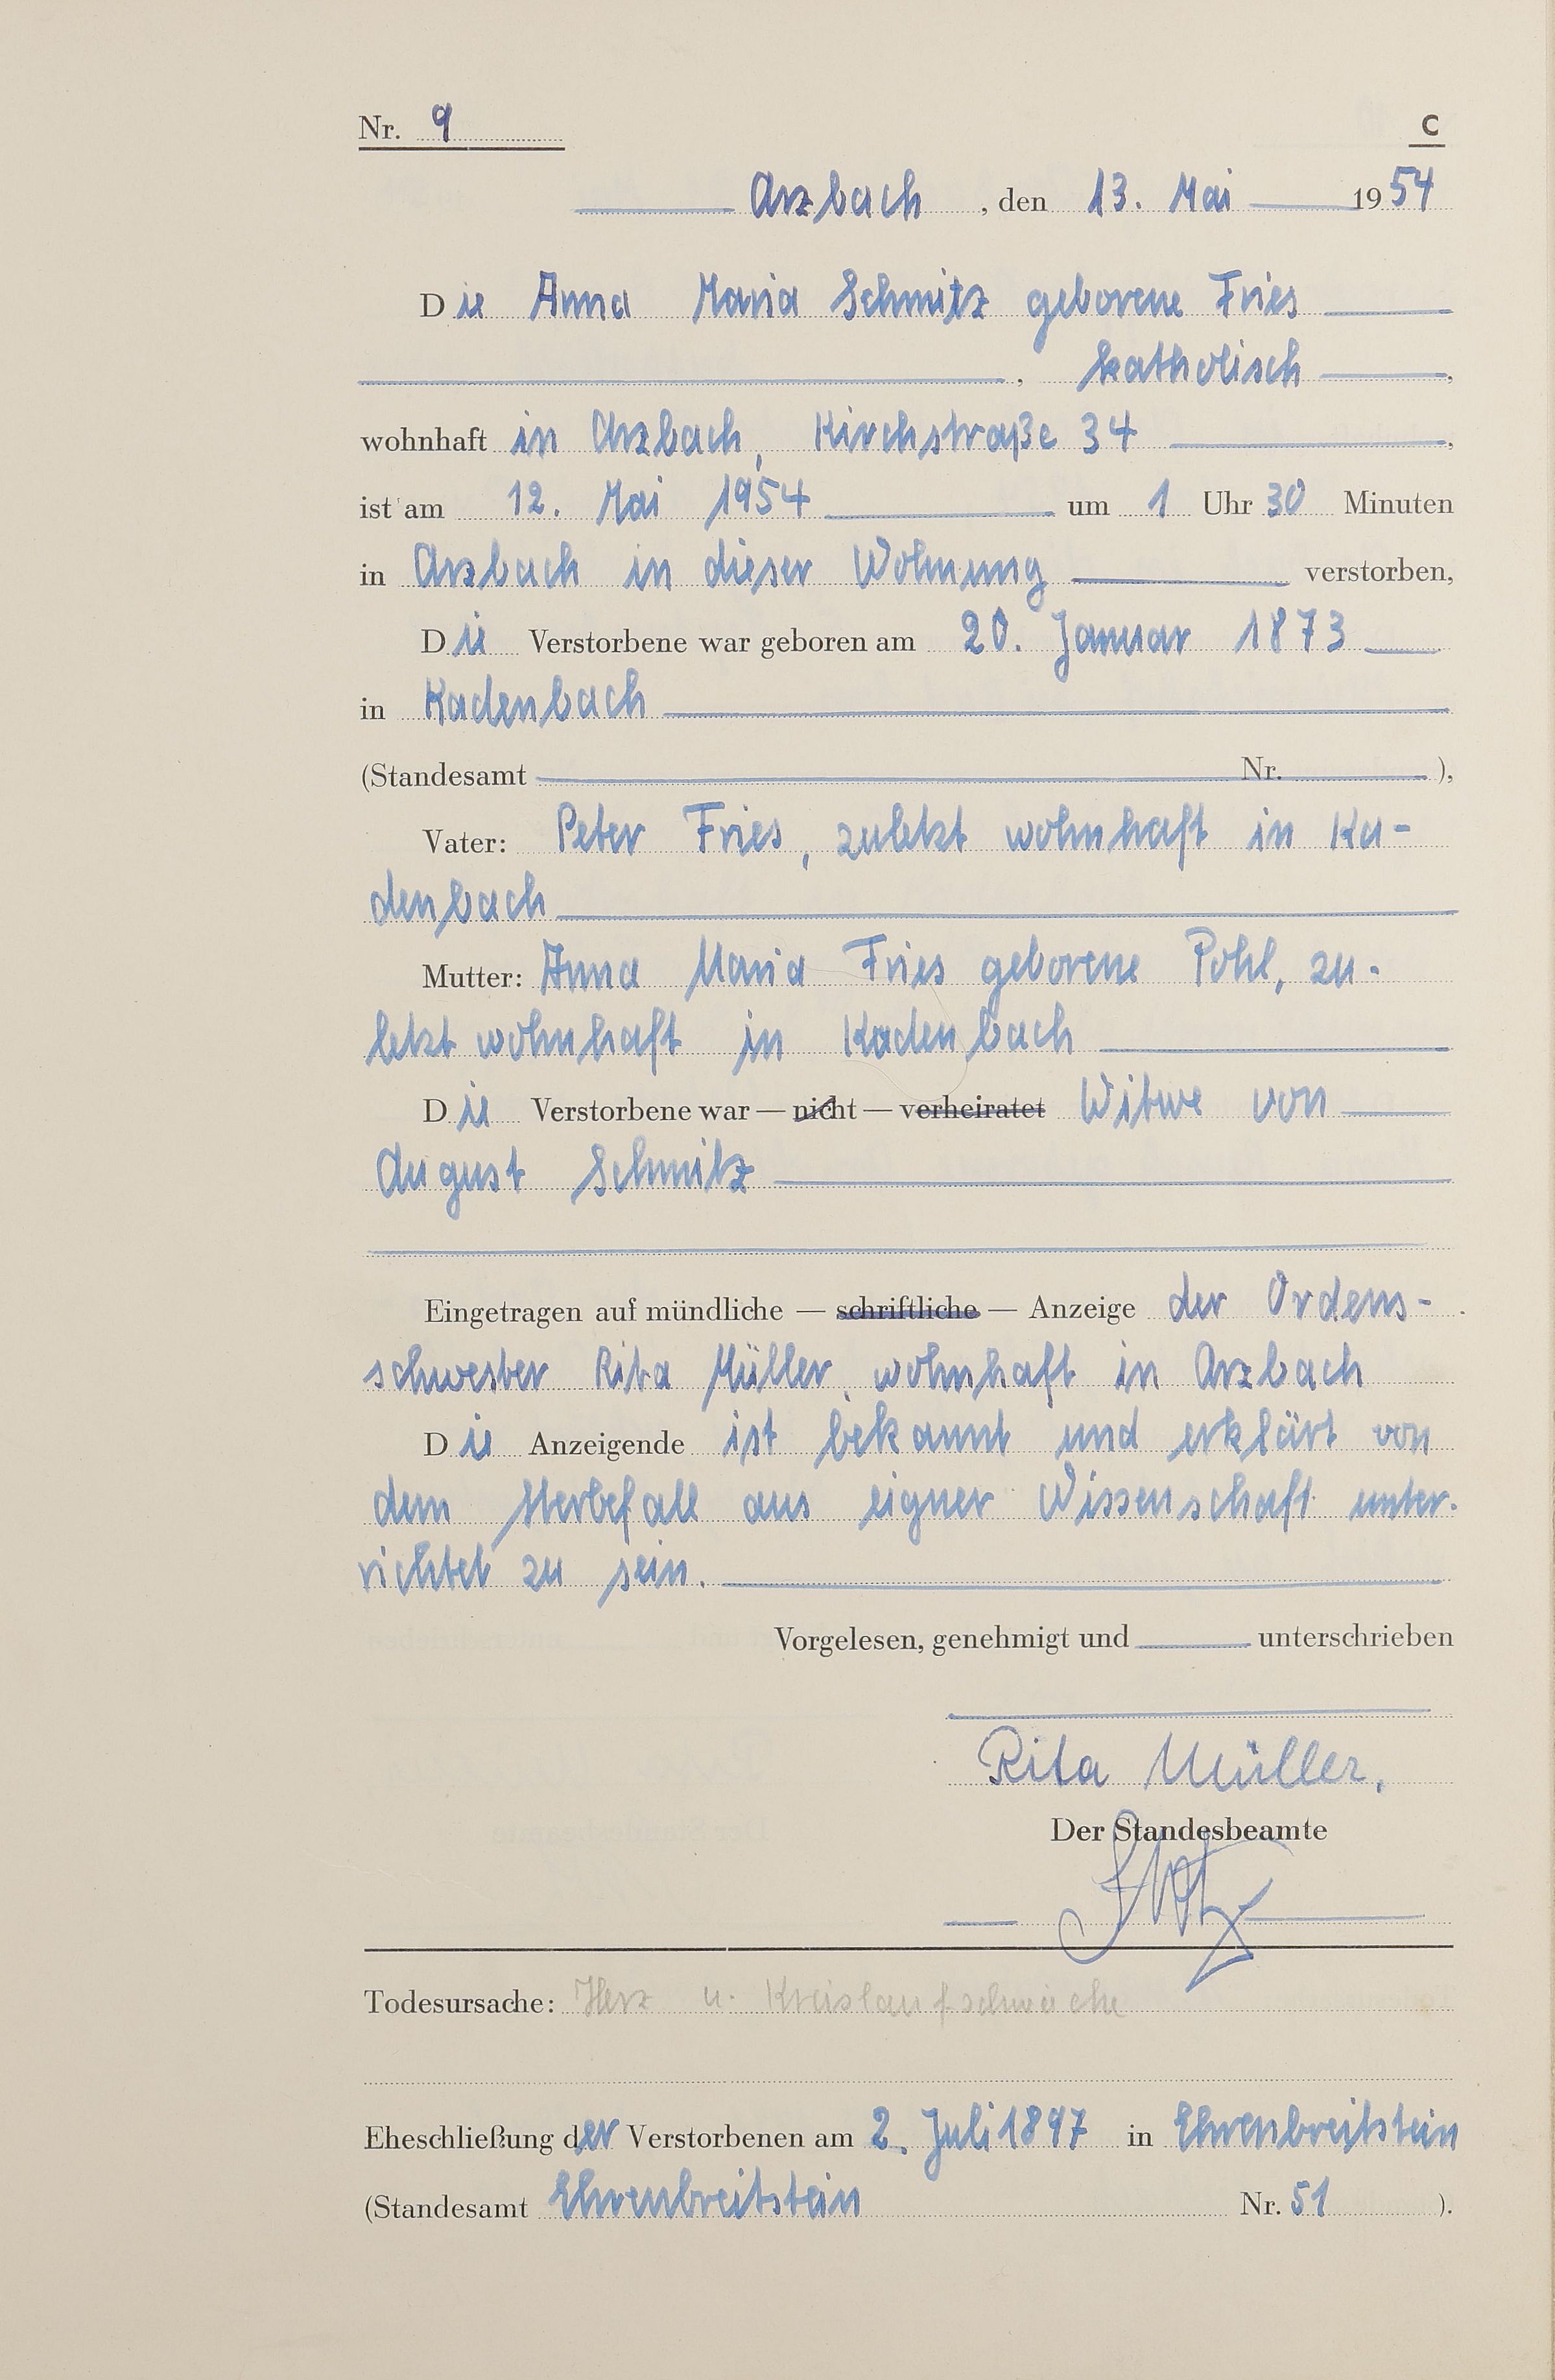 Nr. 9 C
Arzbach , den 13. Mai 1954
Die Anna Maria Schmitz geborene Fries
, katholisch ,
wohnhaft in Arzbach, Kirchstraße 34 ,
ist am 12. Mai 1954 um 1 Uhr 30 Minuten
in Arzbach in dieser Wohnung verstorben,
Die Verstorbene war geboren am 20. Januar 1873
in Kadenbach
(Standesamt Nr. ),
Vater: Peter Fries, zuletzt wohnhaft in Ka-
denbach
Mutter: Anna Maria Fries geborene Pohl, zu-
letzt wohnhaft in Kadenbach
Die Verstorbene war — nicht — verheiratet Witwe von
August Schmitz
Eingetragen auf mündliche — schriftliche — Anzeige der Ordens-
schwester Rita Müller, wohnhaft in Arzbach
Die Anzeigende ist bekannt und erklärt von
dem Sterbefall aus eigner Wissenschaft unter-
richtet zu sein.
Vorgelesen, genehmigt und unterschrieben
Rita Müller,
Der Standesbeamte
Todesursache: Herz u. Kreislaufschwäche
Eheschließung der Verstorbenen am 2. Juli 1897 in Ehrenbreitstein
(Standesamt Ehrenbreitstein Nr. 51 ).